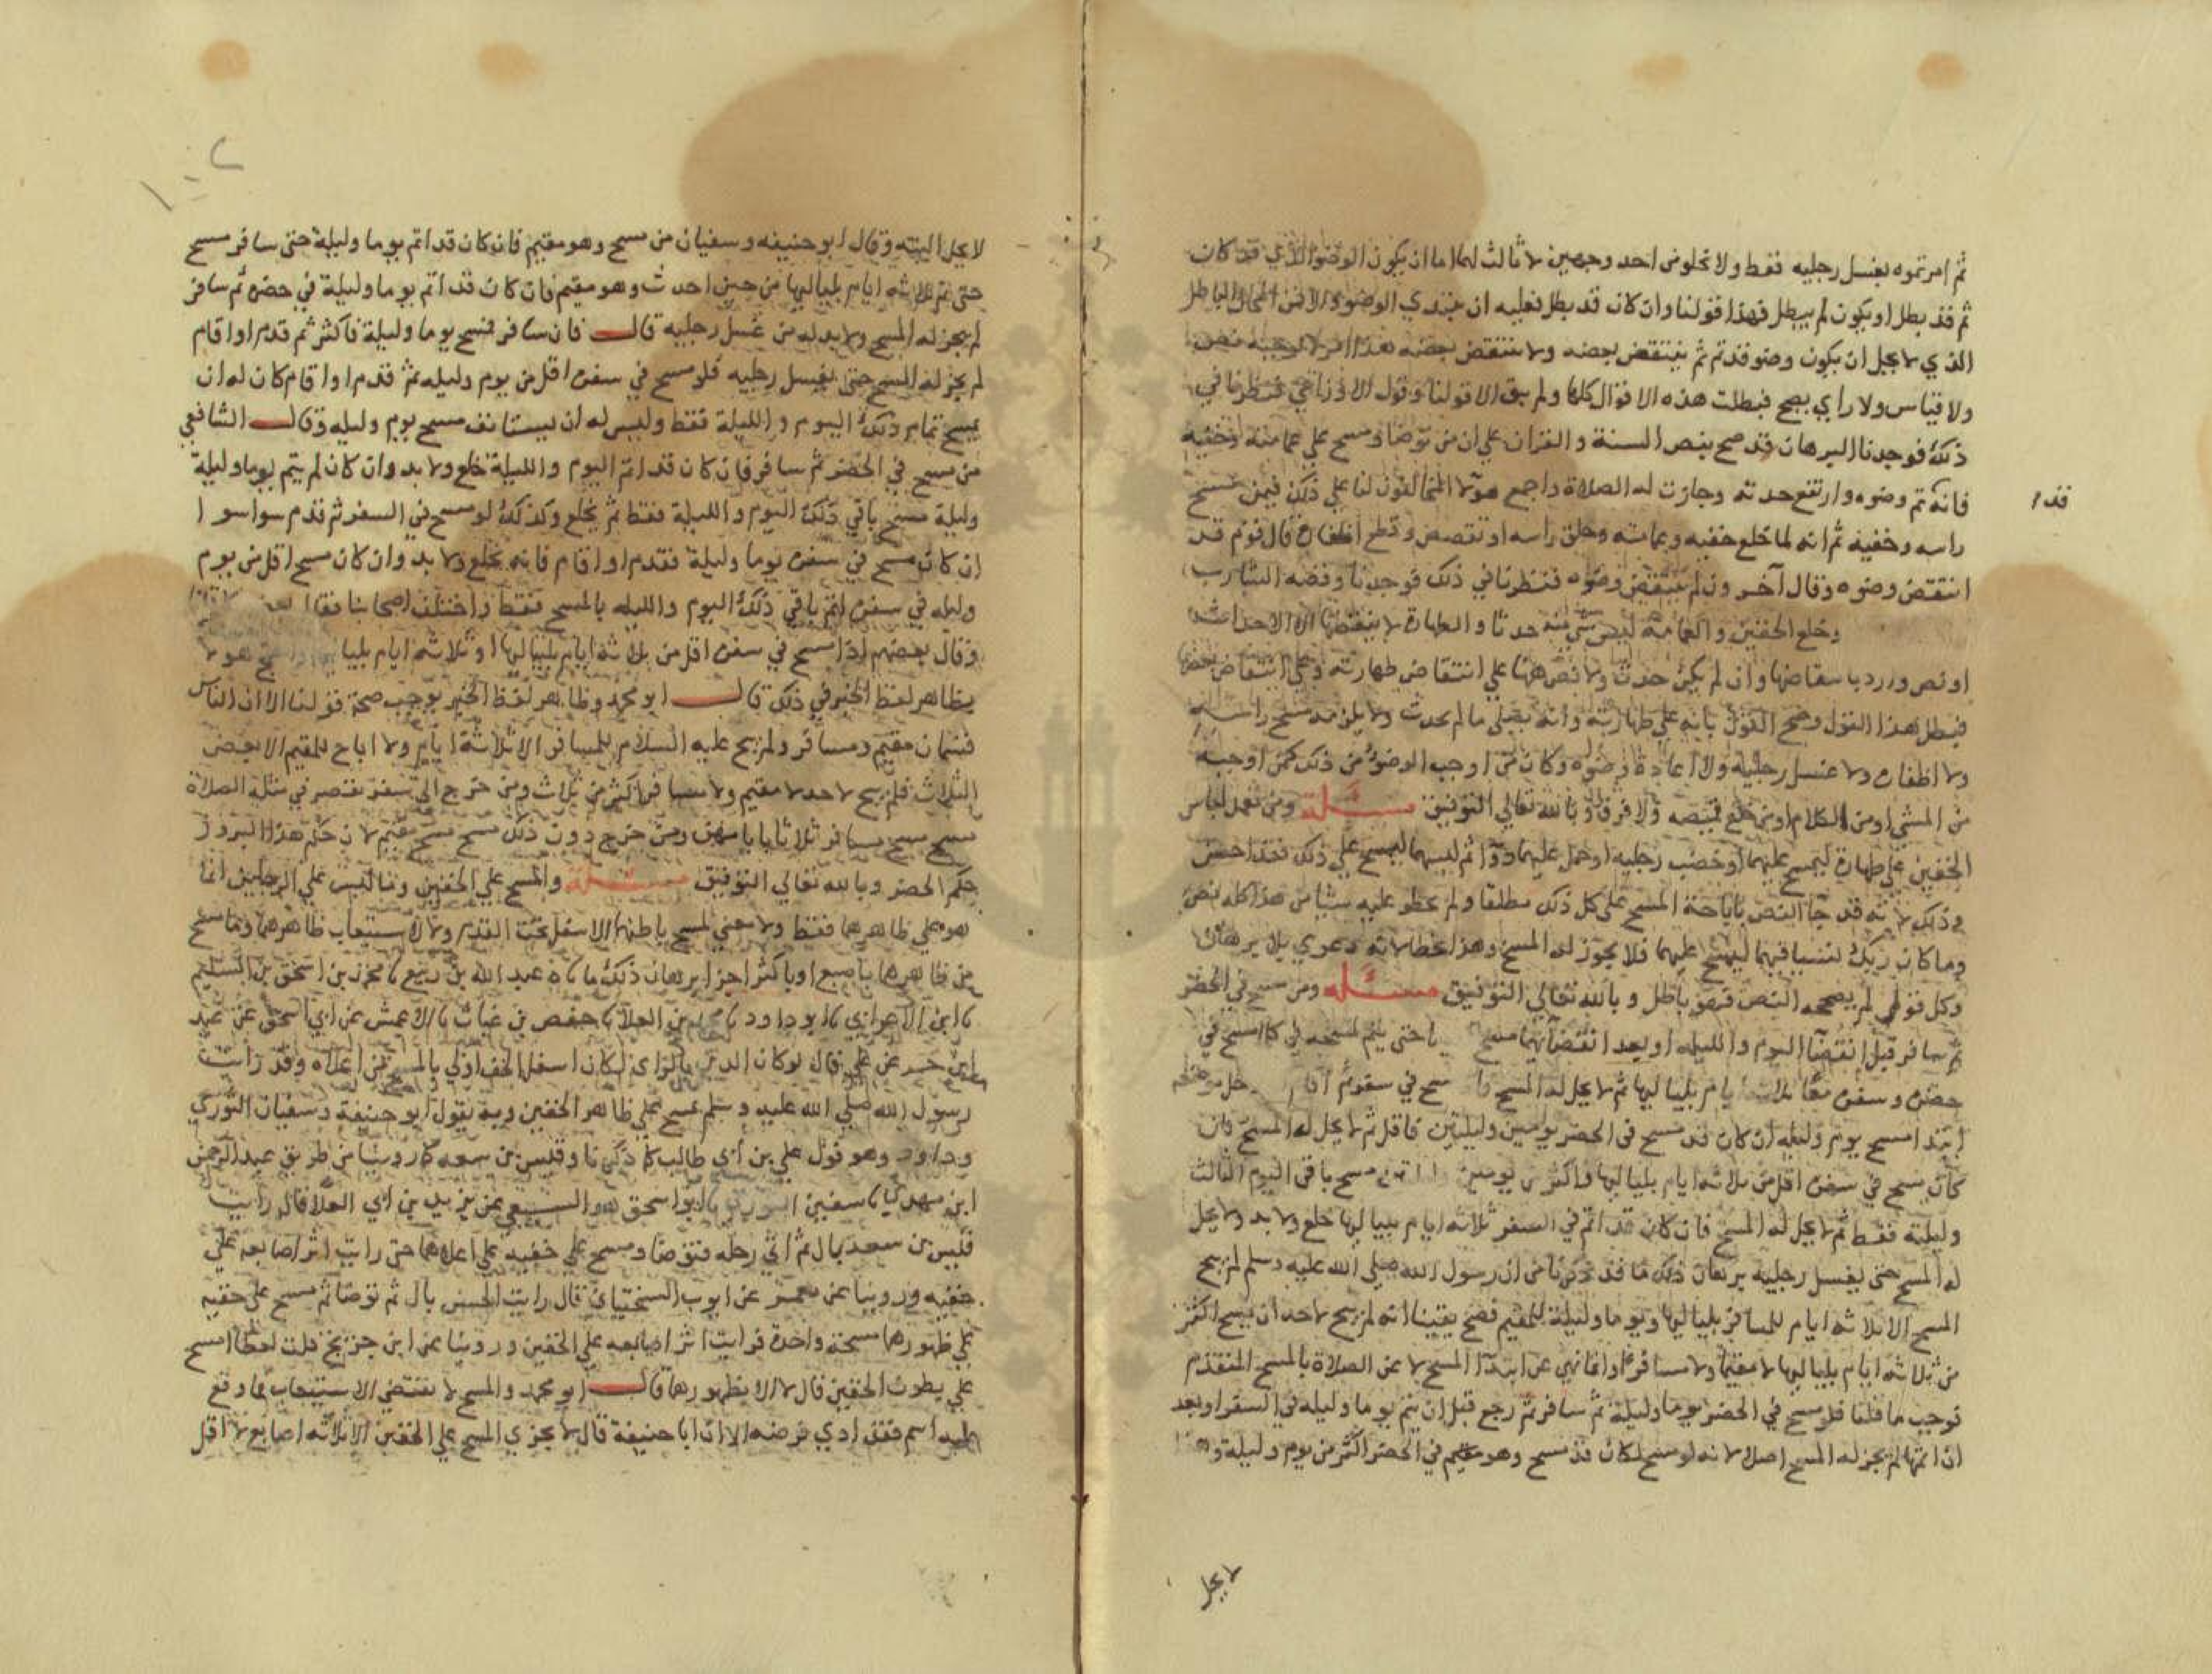 ثم امرتموه بغسل رجليه فقط ولا تخلوا من احد وجهين لا ثالث لهما اما ان يكون الوضو الذي قد كان
ثم قد بطل او يكون لم يبطل فهذا قولنا وان كان قد بطل فعليه ان يبتدي الوضو والا فمن المحال الباطل
الذي لا يحل ان يكون وضو قد تم ثم ينتقض بعضه ولا ينتقض بعضه هذا امر لا يوجبه نص
ولا قياس ولا راي يصح فبطلت هذه الاقوال كلها ولم يبق الا قولنا وقول الاوزاعي فنظرنا في
ذلك فوجدنا البرهان قد صح بنص السنة والقران علي ان من توضا ومسح علي عمامته وخفيه
فانه تم وضوه وارتفع حدثه وجازت له الصلاة واجمع هولا المخالفون لنا علي ذلك فيمن مسح
قد ا
راسه وخفيه ثم انه لما خلع خفيه وعمامته وحلق راسه او تقصص وقطع اظفاره قال قوم قد
انتقض وضوه وقال آخرون لم ينتقض وضوه فنظرنا في ذلك فوجدنا وقصه الشارب
وخلع الخفين والعمامة ليس شي منه حدثا والطهارة لا ينقضها الا الاحداث
او نص وارد بانتقاضها وان لم يكن حدث ولا نص ههنا علي انتقاض طهارته وعلي انتقاض بعضها
فبطل هذا القول وصح القول بانه علي طهارته وانه يصلي ما لم يحدث ولا يلزمه مسح راسه
ولا اظفار ولا غسل رجليه ولا اعادة وضوه وكان من اوجب الوضو من ذلك كمن اوجبه
من المشي او من الكلام او من خلع قميصه ولا فرق وبالله تعالي التوفيق مسئلة ومن تعمد لباس
الخفين علي طهارة ليمسح عليهما او خضب رجليه او حمل عليهما دوا ثم لبسهما ليمسح علي ذلك فقد احسن
وذلك لانه قد جا النص باباحة المسح علي كل ذلك مطلقا ولم يحظر عليه شيا من هذا كله نص
وما كان ربك نسيا فيهما ليمسح عليهما فلا يجوز له المسح وهذا خطا لانه دعوي بلا برهان
وكل قول لم يصححه النص فهو باطل وبالله تعالي التوفيق مسئله ومن مسح في الحضر
ثم سافر قبل انقضا اليوم والليله او بعد انقضائهما مسح حتى يتم لمسحه في كل ما مسح في
حضره وسفره معا ثلاثه ايام بلياليها ثم لا يحل له المسح مسح في سفر ثم اقام
ابتدا مسح يوم وليله ان كان قد مسح في الحضر يومين وليلتين فاقل ثم لا يحل له المسح فان
كان مسح في سفره اقل من ثلاثه ايام بلياليها واكثر من يومين مسح باقي اليوم الثالث
وليلته فقط ثم لا يحل له المسح فان كان قد اتم في السفر ثلاثه ايام بلياليها خلع ولا بد ولا يحل
له المسح حتى يغسل رجليه برهان ذلك ما قد ذكرناه من ان رسول الله صلي الله عليه وسلم لم يبح
المسح الا ثلاثه ايام للمسافر بلياليها ويوما وليلة للمقيم فصح يقينا انه لم يبح لاحد ان يمسح اكثر
من ثلاثه ايام بلياليها لا مقيما ولا مسافرا وانما نهي عن ابتدا المسح لا عن الصلاة بالمسح المتقدم
فوجب ما قلنا فلو مسح في الحضر يوما وليلة ثم سافر ثم رجع قبل ان يتم يوما وليله في السفر او بعد
ان اتمها لم يجز له المسح اصلا لانه لو مسح لكان قد مسح وهو مقيم في الحضر اكثر من يوم وليلة وهذا
لا يحل
١٠٢
لا يحل البته وقال ابو حنيفه وسفيان من مسح وهو مقيم فان كان قد اتم يوما وليلة حتى سافر مسح
حتى يتم ثلاثه ايام بلياليها من حين احدث وهو مقيم فان كان قد اتم يوما وليلة في حضره ثم سافر
لم يجز له المسح ولا بد له من غسل رجليه قال فان سافر فمسح يوما وليلة فاكثر ثم قدم او اقام
لم يجز له المسح حتى يغسل رجليه فلو مسح في سفره اقل من يوم وليله ثم قدم او اقام كان له ان
يمسح تمام ذلك اليوم والليلة فقط وليس له ان يستانف مسح يوم وليله وقال الشافعي
من مسح في الحضر ثم سافر فان كان قد اتم اليوم والليلة خلع ولا بد وان كان لم يتم يوما وليلة
وليلة مسح باقي ذلك اليوم والليلة فقط ثم يخلع وكذلك لو مسح في السفر ثم قدم سوا سوا
ان كان مسح في سفره يوما وليلة فقدم او اقام فانه يخلع ولا بد وان كان مسح اقل من يوم
وليله في سفره اتم باقي ذلك اليوم والليله بالمسح فقط واختلف اصحابنا فقال
وقال بعضهم اذا مسح في سفره اقل من ثلاثه ايام بلياليها او ثلاثه ايام بلياليها هولا
بظاهر لفظ الخبر في ذلك قال ابو محمد وظاهر لفظ الخبر يوجب صحة قولنا لان الناس
قسمان مقيم ومسافر ولم يبح عليه السلام للمسافر الا ثلاثة ايام ولا اباح للمقيم الا بعض
الثلاث فلم يبح لاحد لا مقيم ولا مسافر اكثر من ثلاث ومن خرج الى سفر تقصر في مثله الصلاة
مسح مسح مسافر ثلاثا بلياليهن ومن خرج دون ذلك مسح مسح مقيم لان حكم هذا البروز
حكم الحضر وبالله تعالي التوفيق مسئلة والمسح علي الخفين وما لبس علي الرجلين انما
هو علي ظاهرهما فقط ولا معني لمسح باطنهما الاسفل تحت القدم ولا لاستيعاب ظاهرهما وما مسح
من ظاهرهما باصبع او باكثر اجزا برهان ذلك ما نا عبد الله بن ربيع نا محمد بن اسحق بن السليم
نا ابن الاعرابي نا ابو داود نا محمد بن العلا نا حفص بن غياث نا الاعمش عن ابي اسحق عن عبد
خير عن علي قال لو كان الدين بالراي لكان اسفل الخف اولي بالمسح من اعلاه وقد رايت
رسول الله صلي الله عليه وسلم يمسح علي ظاهر الخفين وبه يقول ابو حنيفة وسفيان الثوري
وداود وهو قول علي بن ابي طالب كما ذكرنا وقيس بن سعد كما روينا من طريق عبد الرحمن
ابن مهدي نا سفين الثوري نا ابو اسحق هو السبيعي عن يزيد بن ابي العلا قال رايت
قيس بن سعد بال ثم اتي دجله فتوضا ومسح علي خفيه علي اعلاهما حتى رايت اثر اصابعه علي
خفيه وروينا عن معمر عن ايوب السختياني قال رايت الحسن بال ثم توضا ثم مسح علي خفيه
علي ظهورهما مسحة واحدة فرايت اثر اصابعه علي الخفين وروينا عن ابن جريج قلت لعطا امسح
علي بطون الخفين قال لا الا بظهورهما قال ابو محمد والمسح لا يقتضي الاستيعاب فما وقع
عليه اسم فقد ادي فرضه الا ان ابا حنيفة قال لا يجزي المسح علي الخفين الا بثلاثه اصابع لا اقل